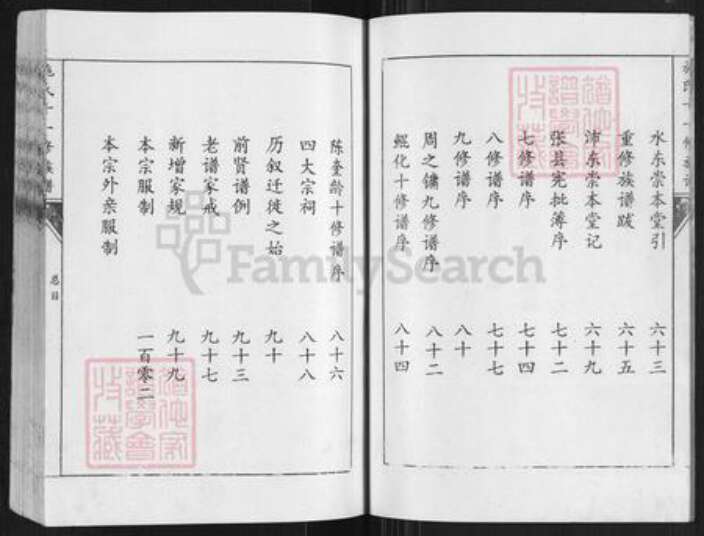 水东崇本堂引 六十三
重修族谱跋 六十五
沛东崇本堂记 六十九
张县宪批薄序 七十二
七修谱序 七十四
八修谱序 七十七
九修谱序 八十
周之镛九修谱序 八十二
鲲化十修谱序 八十四
陈奎龄十修谱序 八十六
四大宗祠 八十八
历叙迁徙之始 九十
前贤谱例 九十三
老谱家戒 九十七
新增家规 九十九
本宗服制 一百零二
本宗外亲服制
总目
FamilySearch